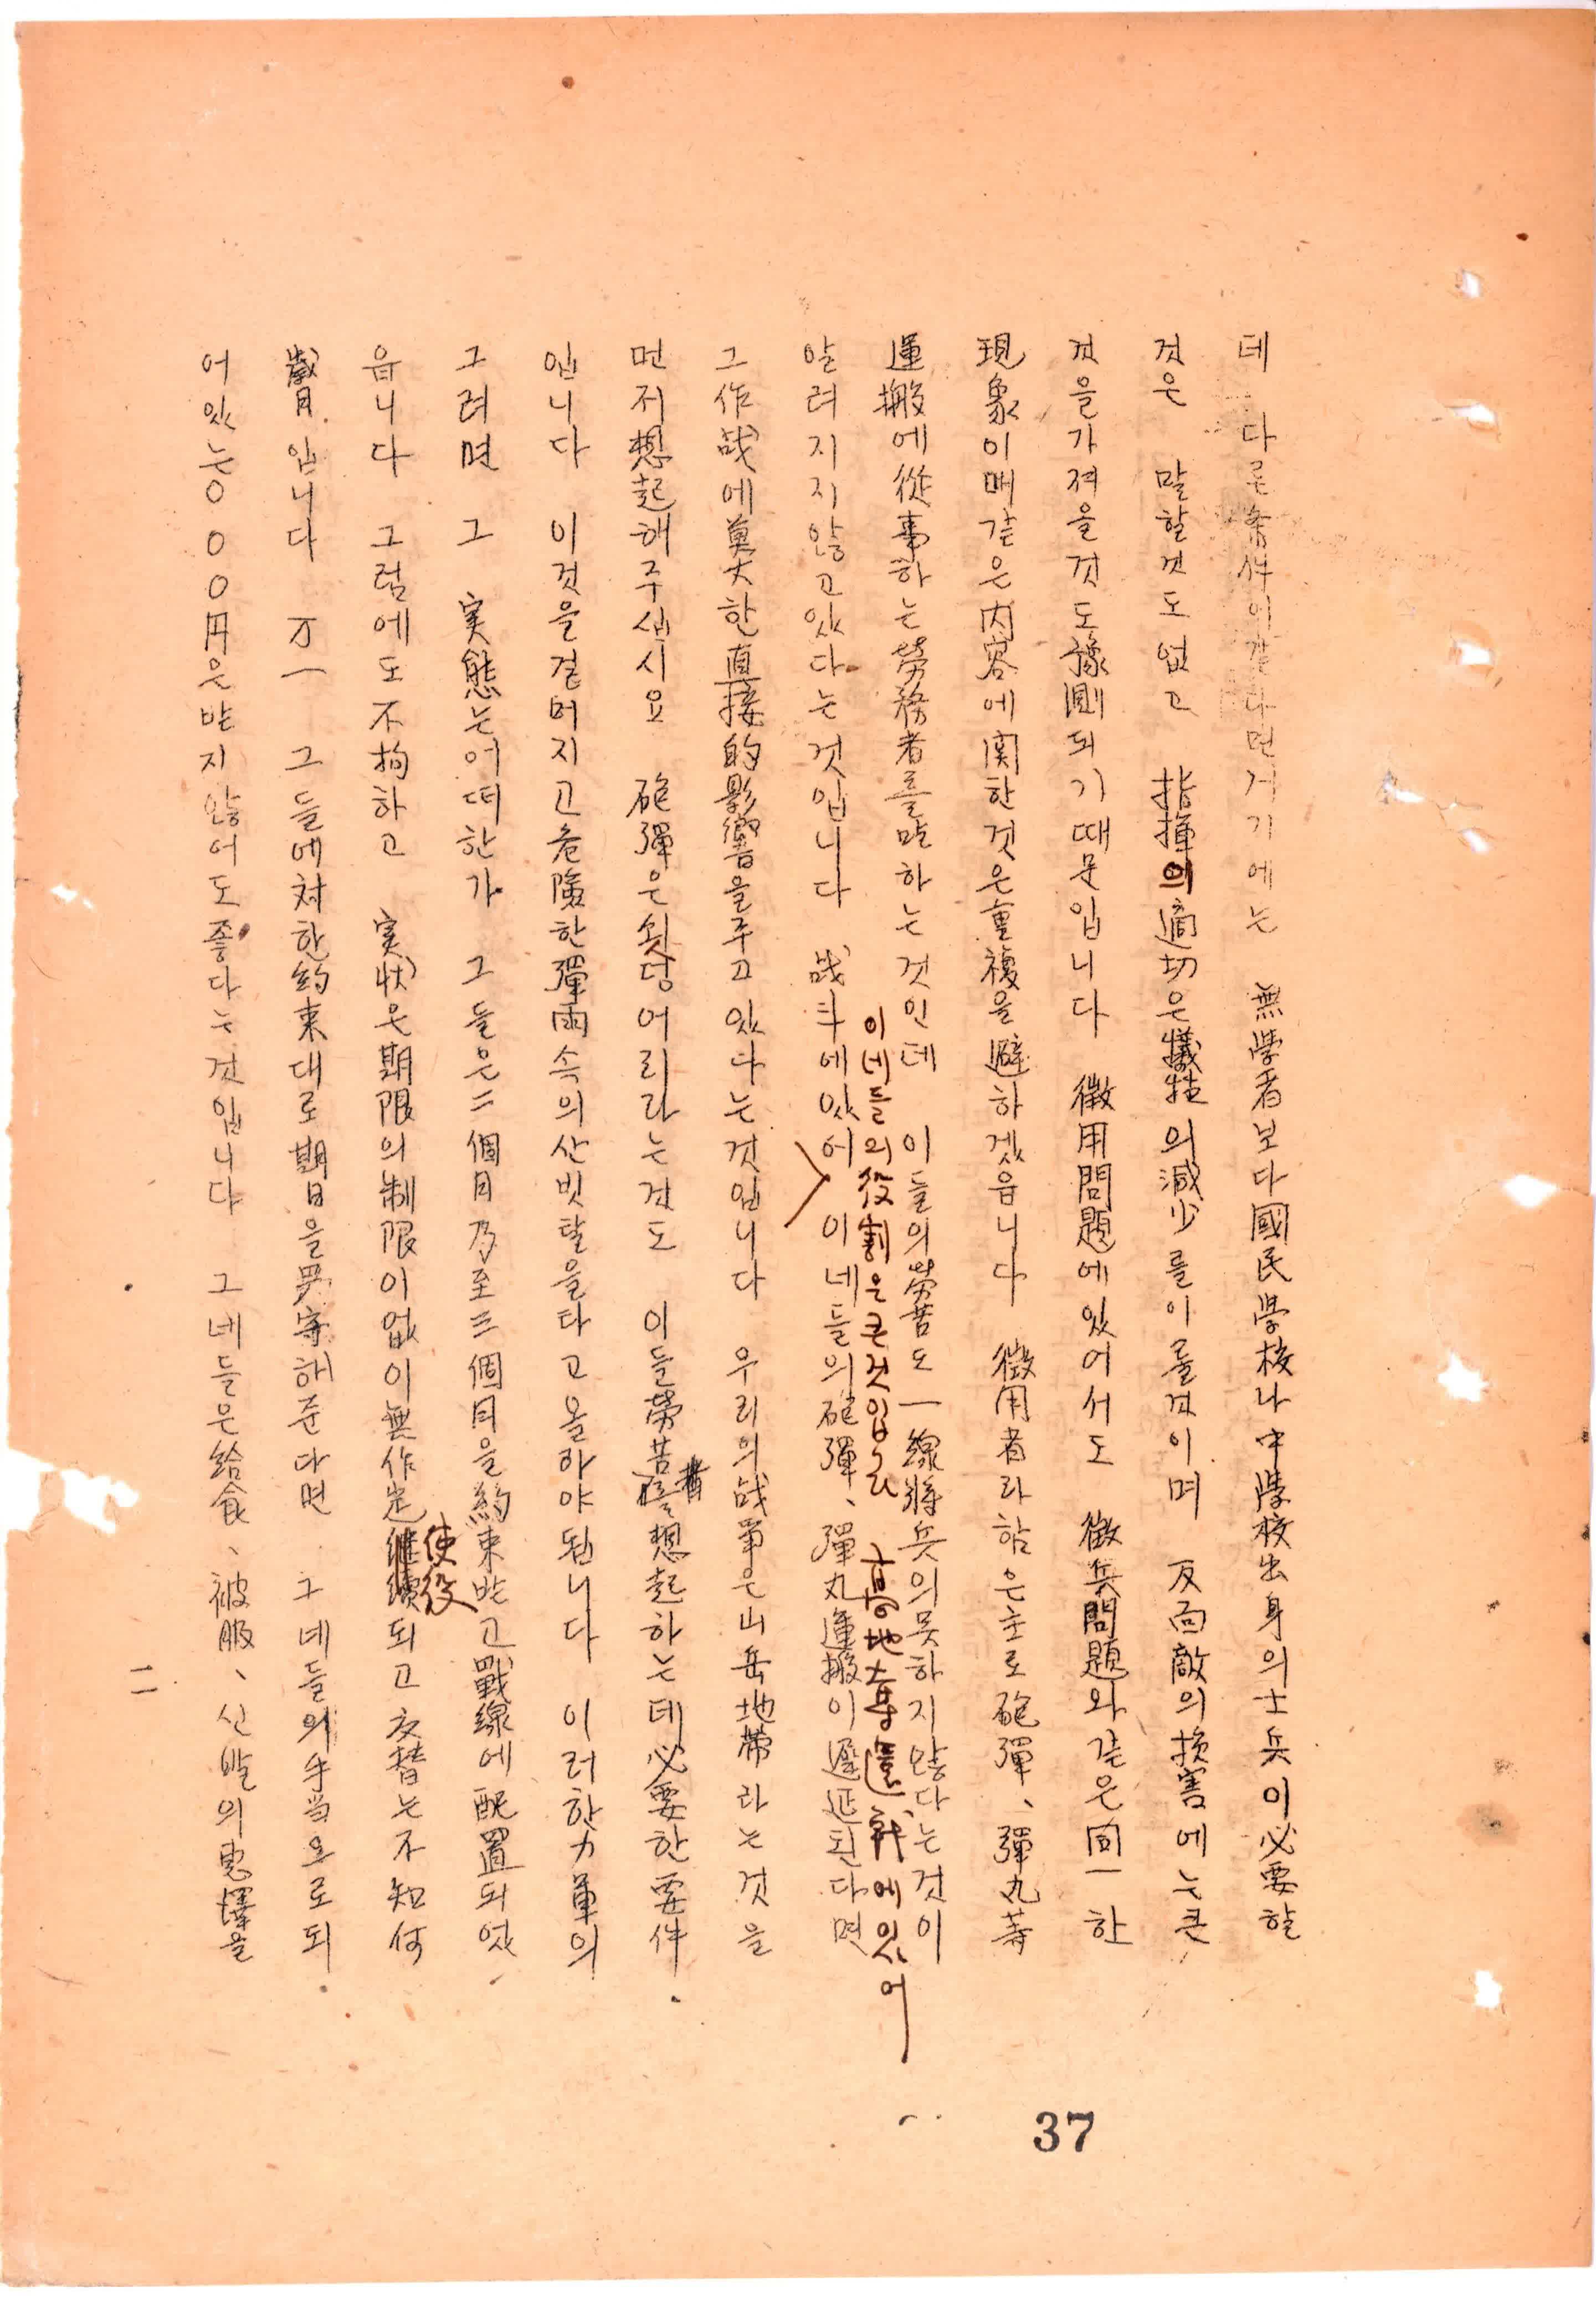 데 다른條件이같다면거기에는 無学者보다國民学校나中学校出身의士兵이必要할
것은 말할것도없고 指揮의適切은犠牲의減少를이룰것이며 反面敵의損害에는큰
것을가져올것도豫測되기때문입니다 徵用問題에있어서도 徵兵問題와같은同一한
現象이매같은内容에関한것은重複을避하겠읍니다 徵用者라함은主로砲彈、彈丸等
運搬에從事하는勞務者를말하는것인데 이들의勞苦도一線將兵의못하지않다는것이
알려지지않고있다는것입니다 战斗에있어 이네들의砲彈、彈丸運搬이遲延된다면
이네들의役割은큰것입니다 高地奪還戰에있어
그作战에莫大한直接的影響을주고있다는것입니다 우리의战爭은山岳地帶라는것을
먼저想起해주십시요 砲彈은쇳덩어리라는것도 이들勞苦者를想起하는데必要한要件
입니다 이것을걸머지고危險한彈雨속의산빗탈을타고올라야됩니다 이러한力軍의
그려면 그 実態는어떠한가 그들은二個月乃至三個月을約束받고戰線에配置되었
읍니다 그럼에도不拘하고 実狀은期限의制限이없이無作定使役되고交替는不知何
歲月입니다 万一 그들에対한約束대로期日을嚴守해준다면 그네들의手当으로되
어있는〇〇〇円은받지않어도좋다는것입니다 그네들은給食、被服、신발의恵澤을
二
37